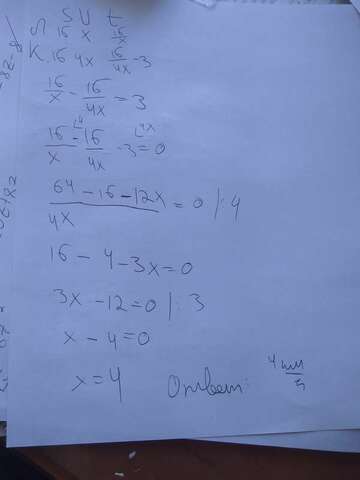 S U t
Л. 16 x 16/x
К. 16 4x 16/4x -3
16/x - 16/4x = 3
16/x - 16/4x - 3 = 0
64 - 16 - 12x / 4x = 0 |: 4
16 - 4 - 3x = 0
3x - 12 = 0 |: 3
x - 4 = 0
x = 4 Ответ: